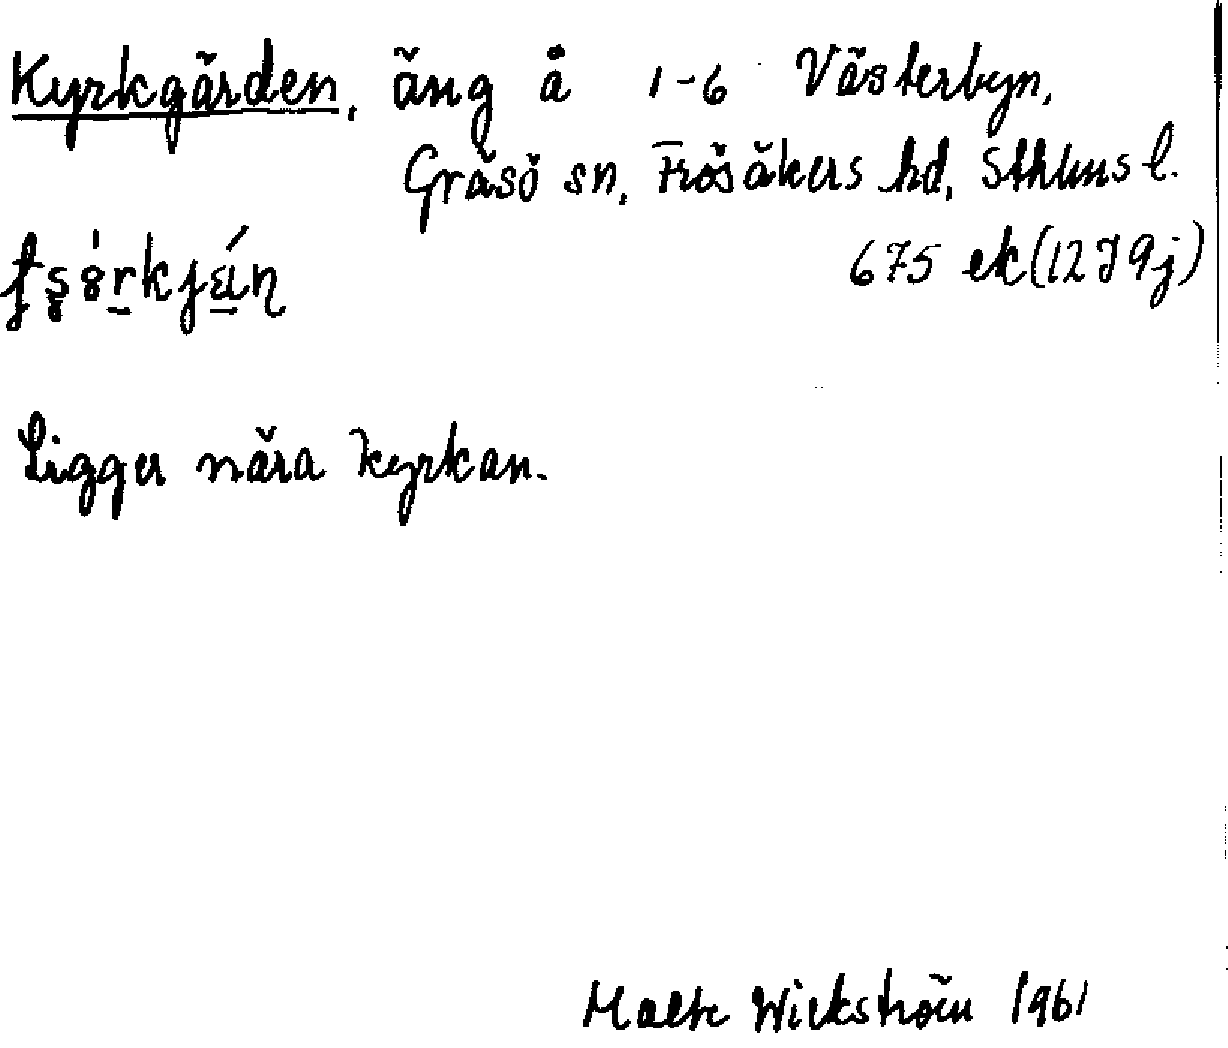 Kyrkgärden, äng å 1-6 Västerbyn,
Gräsö sn, Frösåkers hd, Sthlms l.
675 ek (12J9j)
Ligger nära kyrkan.
Malte Wickström 1961